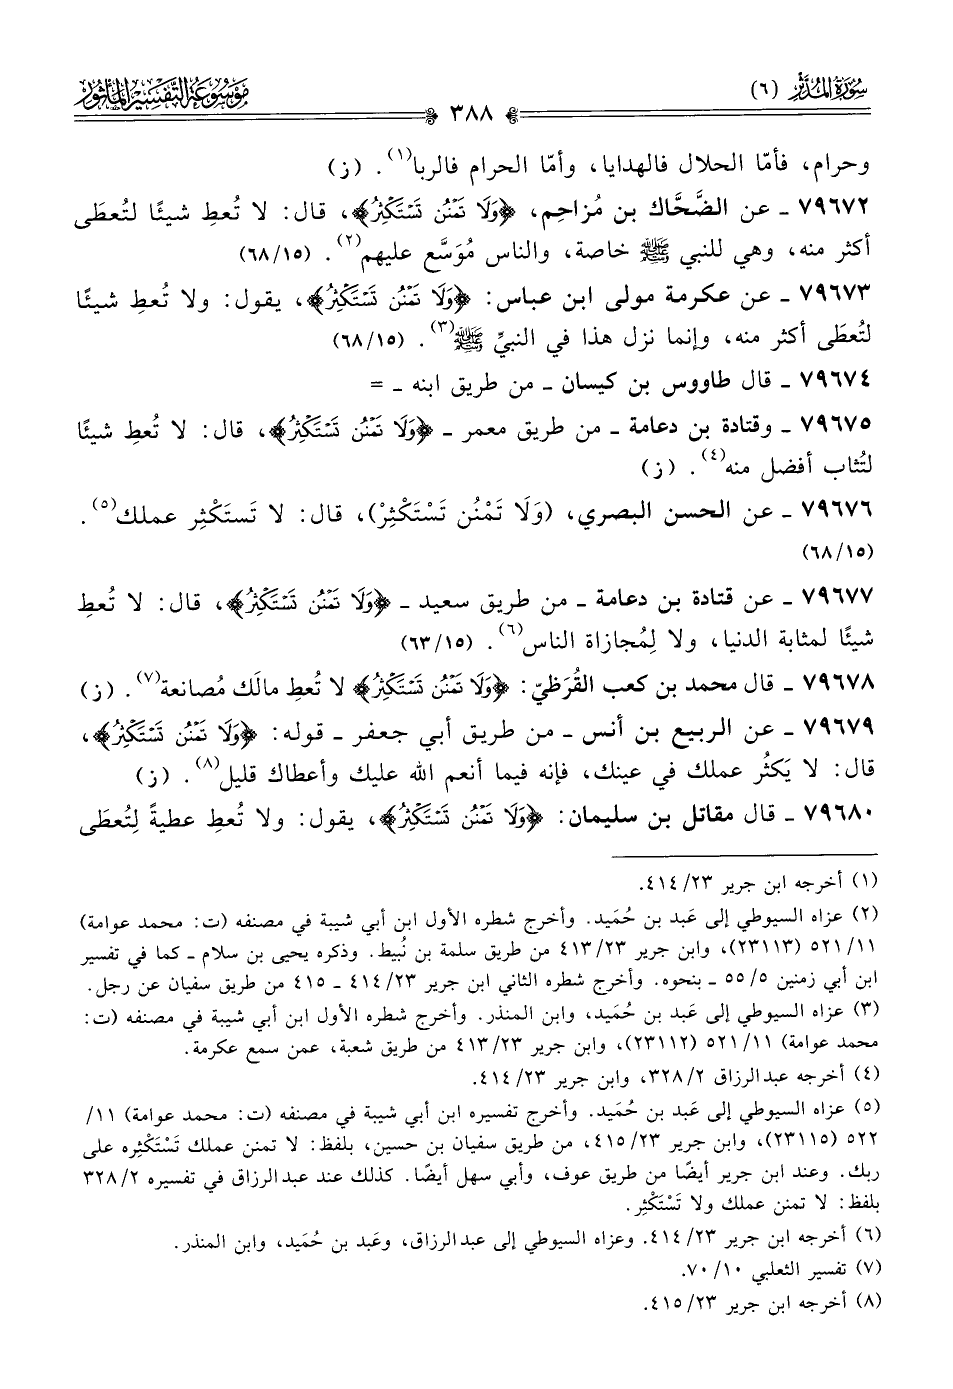 سُورَةُ المُدَّثِّر (٦)
٣٨٨
مَوْسُوعَة التَّفْسِيرُ المَأْثُور
وحرام، فأمّا الحلال فالهدايا، وأمّا الحرام فالربا(١). (ز)
٧٩٦٧٢ ـ عن الضَّحَّاك بن مُزاحِم، ﴿وَلَا تَمْنُن تَسْتَكْثِرُ﴾، قال: لا تُعطِ شيئًا لتُعطَى
أكثر منه، وهي للنبي ﷺ خاصة، والناس مُوَسَّع عليهم(٢). (٦٨/١٥)
٧٩٦٧٣ ـ عن عكرمة مولى ابن عباس: ﴿وَلَا تَمْنُن تَسْتَكْثِرُ﴾، يقول: ولا تُعطِ شيئًا
لتُعطَى أكثر منه، وإنما نزل هذا في النبيِّ ﷺ(٣). (٦٨/١٥)
٧٩٦٧٤ ـ قال طاووس بن كيسان ـ من طريق ابنه ـ =
٧٩٦٧٥ ـ وقتادة بن دعامة ـ من طريق معمر ـ ﴿وَلَا تَمْنُن تَسْتَكْثِرُ﴾، قال: لا تُعطِ شيئًا
لتُثاب أفضل منه(٤). (ز)
٧٩٦٧٦ ـ عن الحسن البصري، (وَلَا تَمْنُن تَسْتَكْثِرْ)، قال: لا تَستَكْثِر عملك(٥).
(٦٨/١٥)
٧٩٦٧٧ ـ عن قتادة بن دعامة ـ من طريق سعيد ـ ﴿وَلَا تَمْنُن تَسْتَكْثِرُ﴾، قال: لا تُعطِ
شيئًا لمثابة الدنيا، ولا لِمُجازاة الناس(٦). (٦٣/١٥)
٧٩٦٧٨ ـ قال محمد بن كعب القُرَظيّ: ﴿وَلَا تَمْنُن تَسْتَكْثِرُ﴾ لا تُعطِ مالَك مُصانعة(٧). (ز)
٧٩٦٧٩ ـ عن الربيع بن أنس ـ من طريق أبي جعفر ـ قوله: ﴿وَلَا تَمْنُن تَسْتَكْثِرُ﴾،
قال: لا يَكثُر عملك في عينك، فإنه فيما أنعم الله عليك وأعطاك قليل(٨). (ز)
٧٩٦٨٠ ـ قال مقاتل بن سليمان: ﴿وَلَا تَمْنُن تَسْتَكْثِرُ﴾، يقول: ولا تُعطِ عطيةً لِتُعطَى
(١) أخرجه ابن جرير ٢٣/ ٤١٤.
(٢) عزاه السيوطي إلى عَبد بن حُمَيد. وأخرج شطره الأول ابن أبي شيبة في مصنفه (ت: محمد عوامة)
١١/ ٥٢١ (٢٣١١٣)، وابن جرير ٤١٣/٢٣ من طريق سلمة بن نُبيط. وذكره يحيى بن سلام ـ كما في تفسير
ابن أبي زمنين ٥/ ٥٥ ـ بنحوه. وأخرج شطره الثاني ابن جرير ٤١٤/٢٣ ـ ٤١٥ من طريق سفيان عن رجل.
(٣) عزاه السيوطي إلى عَبد بن حُمَيد، وابن المنذر. وأخرج شطره الأول ابن أبي شيبة في مصنفه (ت:
محمد عوامة) ١١/ ٥٢١ (٢٣١١٢)، وابن جرير ٤١٣/٢٣ من طريق شعبة، عمن سمع عكرمة.
(٤) أخرجه عبدالرزاق ٣٢٨/٢، وابن جرير ٤١٤/٢٣.
(٥) عزاه السيوطي إلى عَبد بن حُمَيد. وأخرج تفسيره ابن أبي شيبة في مصنفه (ت: محمد عوامة) ١١/
٥٢٢ (٢٣١١٥)، وابن جرير ٤١٥/٢٣، من طريق سفيان بن حسين، بلفظ: لا تمنن عملك تَسْتَكْثِره على
ربك. وعند ابن جرير أيضًا من طريق عوف، وأبي سهل أيضًا. كذلك عند عبدالرزاق في تفسيره ٣٢٨/٢
بلفظ: لا تمنن عملك ولا تَسْتَكْثِر.
(٦) أخرجه ابن جرير ٤١٤/٢٣. وعزاه السيوطي إلى عبدالرزاق، وعَبد بن حُمَيد، وابن المنذر.
(٧) تفسير الثعلبي ١٠/ ٧٠.
(٨) أخرجه ابن جرير ٢٣/ ٤١٥.